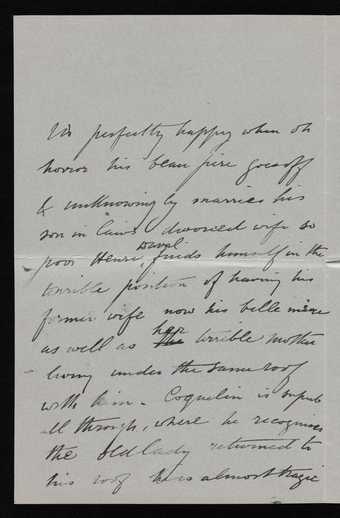 is perfectly happy when oh
horror his beau père goes off
& unknowingly marries his
son in law's divorced wife so
poor Henri Duval finds himself in the
terrible position of having his
former wife now his belle mère
as well as her terrible mother
living under the same roof
with him. Coquelin is superb
all through, where he recognises
the old lady returned to
his roof he is almost tragic